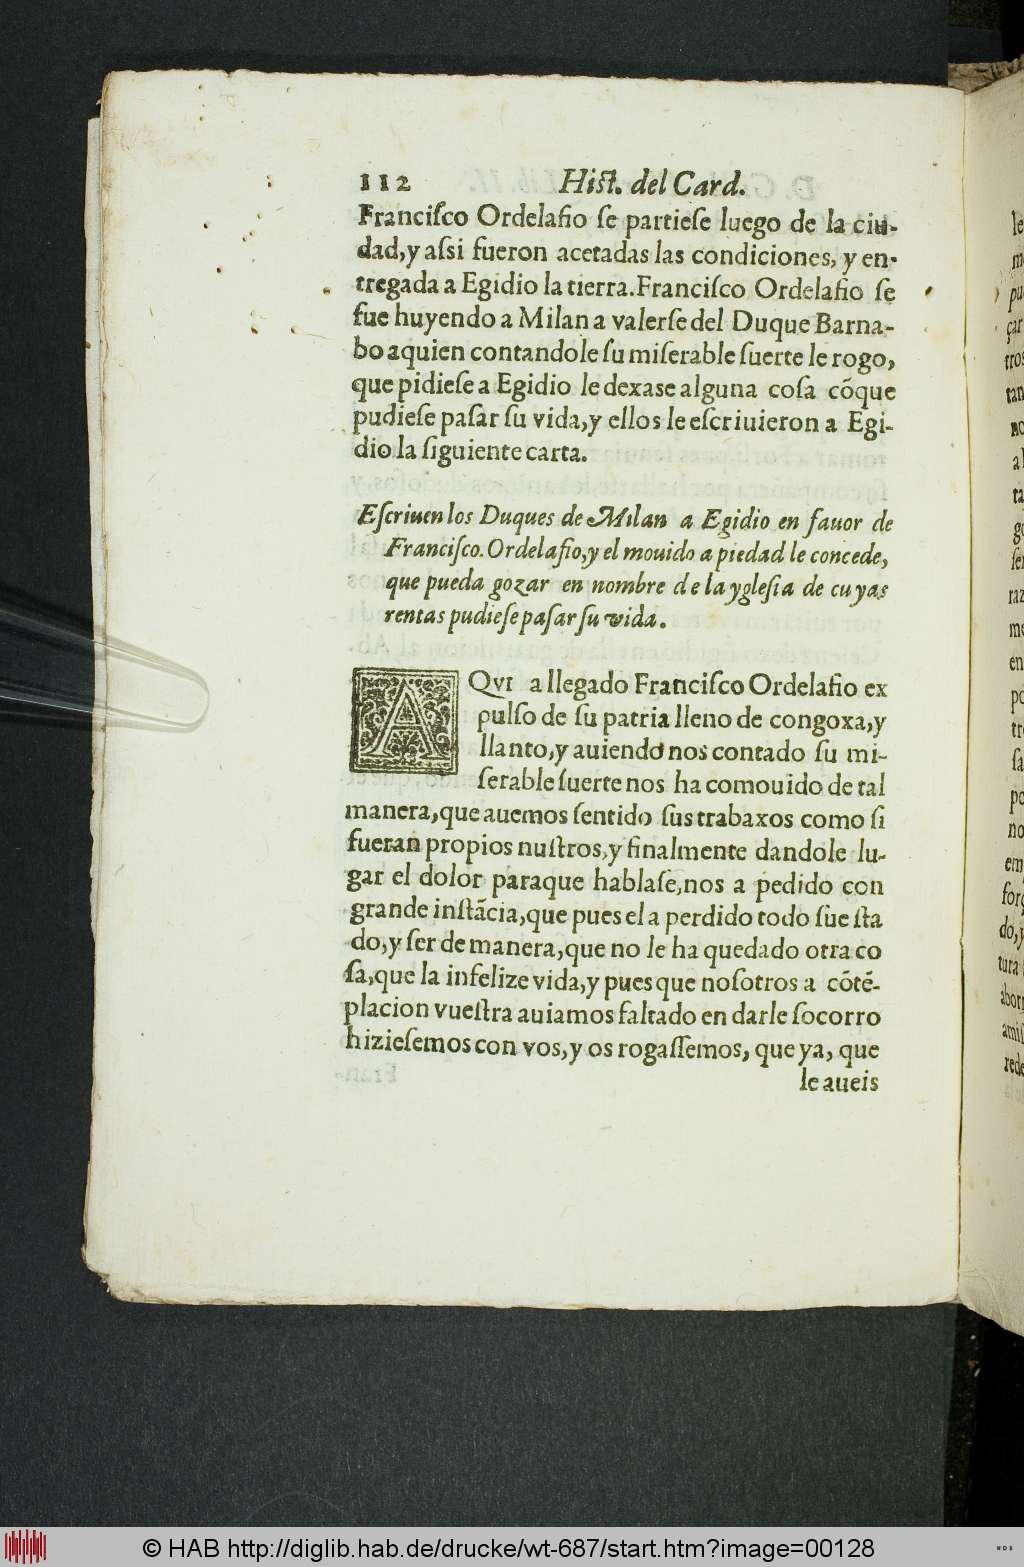 112 Hist. del Card.
Franciſco Ordelafio ſe partieſe luego de la ciu-
dad,y aſsi fueron acetadas las condiciones, y en-
tregada a Egidio la tierra.Franciſco Ordelafio ſe
fue huyendo a Milan a valerſe del Duque Barna-
bo aquien contandole ſu miſerable ſuerte le rogo,
que pidieſe a Egidio le dexase alguna coſa cõque
pudieſe paſar ſu vida,y ellos le eſcriuieron a Egi-
dio la ſiguiente carta.
Eſcriuen los Duques de Milan a Egidio en fauor de
Franciſco.Ordelafio,y el mouido a piedad le concede,
que pueda gozar en nombre de la ygleſia de cuyas
rentas pudieſe paſar ſu vida.
AQVI a llegado Franciſco Ordelafio ex
pulſo de ſu patria lleno de congoxa,y
llanto,y auiendo nos contado ſu mi-
ſerable ſuerte nos ha comouido de tal
manera,que auemos ſentido ſus trabaxos como ſi
fueran propios nuſtros,y finalmente dandole lu-
gar el dolor paraque hablaſe,nos a pedido con
grande inſtãcia,que pues el a perdido todo ſu eſta
do,y ſer de manera,que no le ha quedado otra co
ſa,que la infelize vida,y pues que noſotros a cõtẽ-
placion vueſtra auiamos faltado en darle ſocorro
hizieſemos con vos,y os rogaſſemos, que ya, que
le aueis
le
me
pu
çar
tros
tan
no
ta
raz
me
en
po
tr
ſa
po
no
em
forç
do,y
tura
aborr
amil
rede
© HAB http://diglib.hab.de/drucke/wt-687/start.htm?image=00128